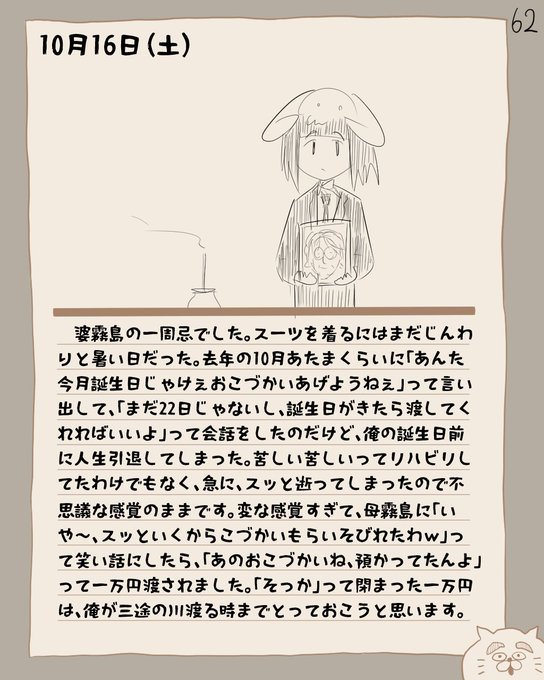 62
10月16日(土)
婆霧島の一周忌でした。スーツを着るにはまだじんわ
りと暑い日だった。去年の10月あたまくらいに「あんた
今月誕生日じゃけぇおこづかいあげようねぇ」って言い
出して、「まだ22日じゃないし、誕生日がきたら渡してく
れればいいよ」って会話をしたのだけど、俺の誕生日前
に人生引退してしまった。苦しい苦しいってリハビリし
てたわけでもなく、急に、スッと逝ってしまったので不
思議な感覚のままです。変な感覚すぎて、母霧島に「い
や〜、スッといくからこづかいもらいそびれたわw」っ
て笑い話にしたら、「あのおこづかいね、預かってたんよ」
って一万円渡されました。「そっか」って閉まった一万円
は、俺が三途の川渡る時までとっておこうと思います。